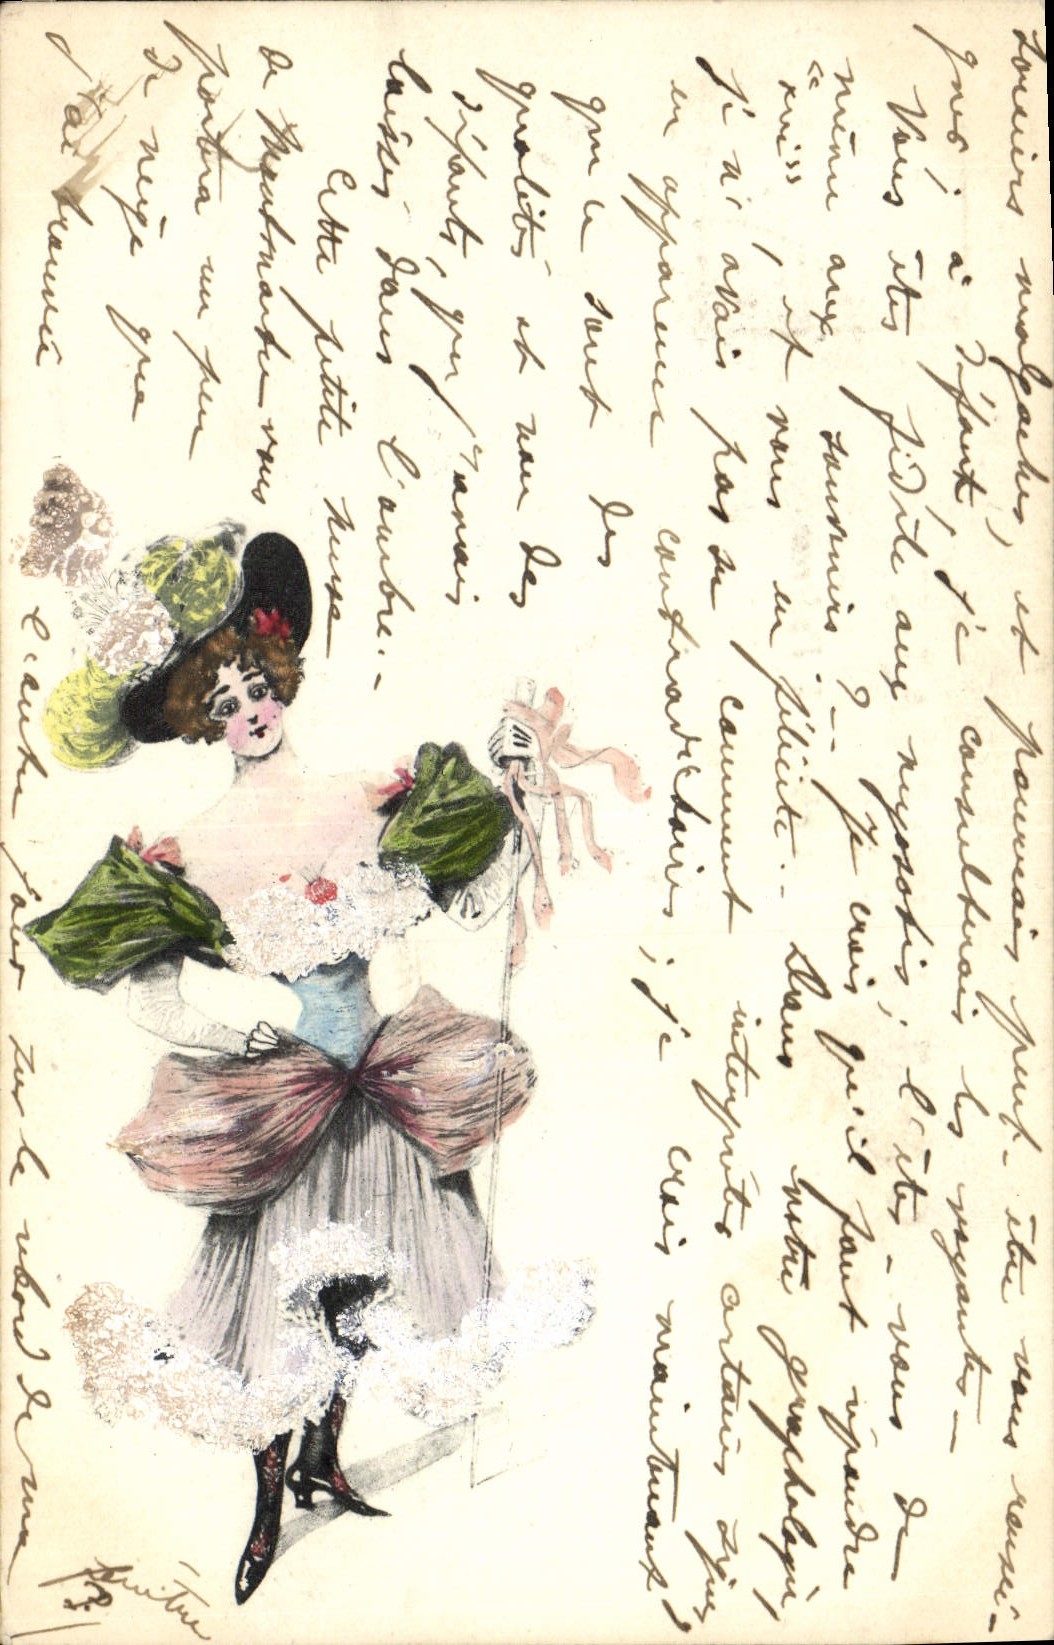 sorciers malgaches, et pourrais peut-être vous rensei-
gner ; à défaut, je consulterais les voyantes —
Vous êtes fidèle aux myosotis ; l'êtes-vous de
même aux souvenirs ?.. Je crois qu'il faut répondre
"oui", et vous en félicite.. Dans notre graphologie,
je n'avais pas su comment interpréter certains signes
en apparence contradictoires ; je crois maintenant
que ce sont des
qualités et non des
défauts, que j'avais
laissés dans l'ombre..
Cette petite russe
de Montmartre vous
portera un peu
de neige que
j'ai trouvée
l'autre jour sur le rebord de ma
fenêtre